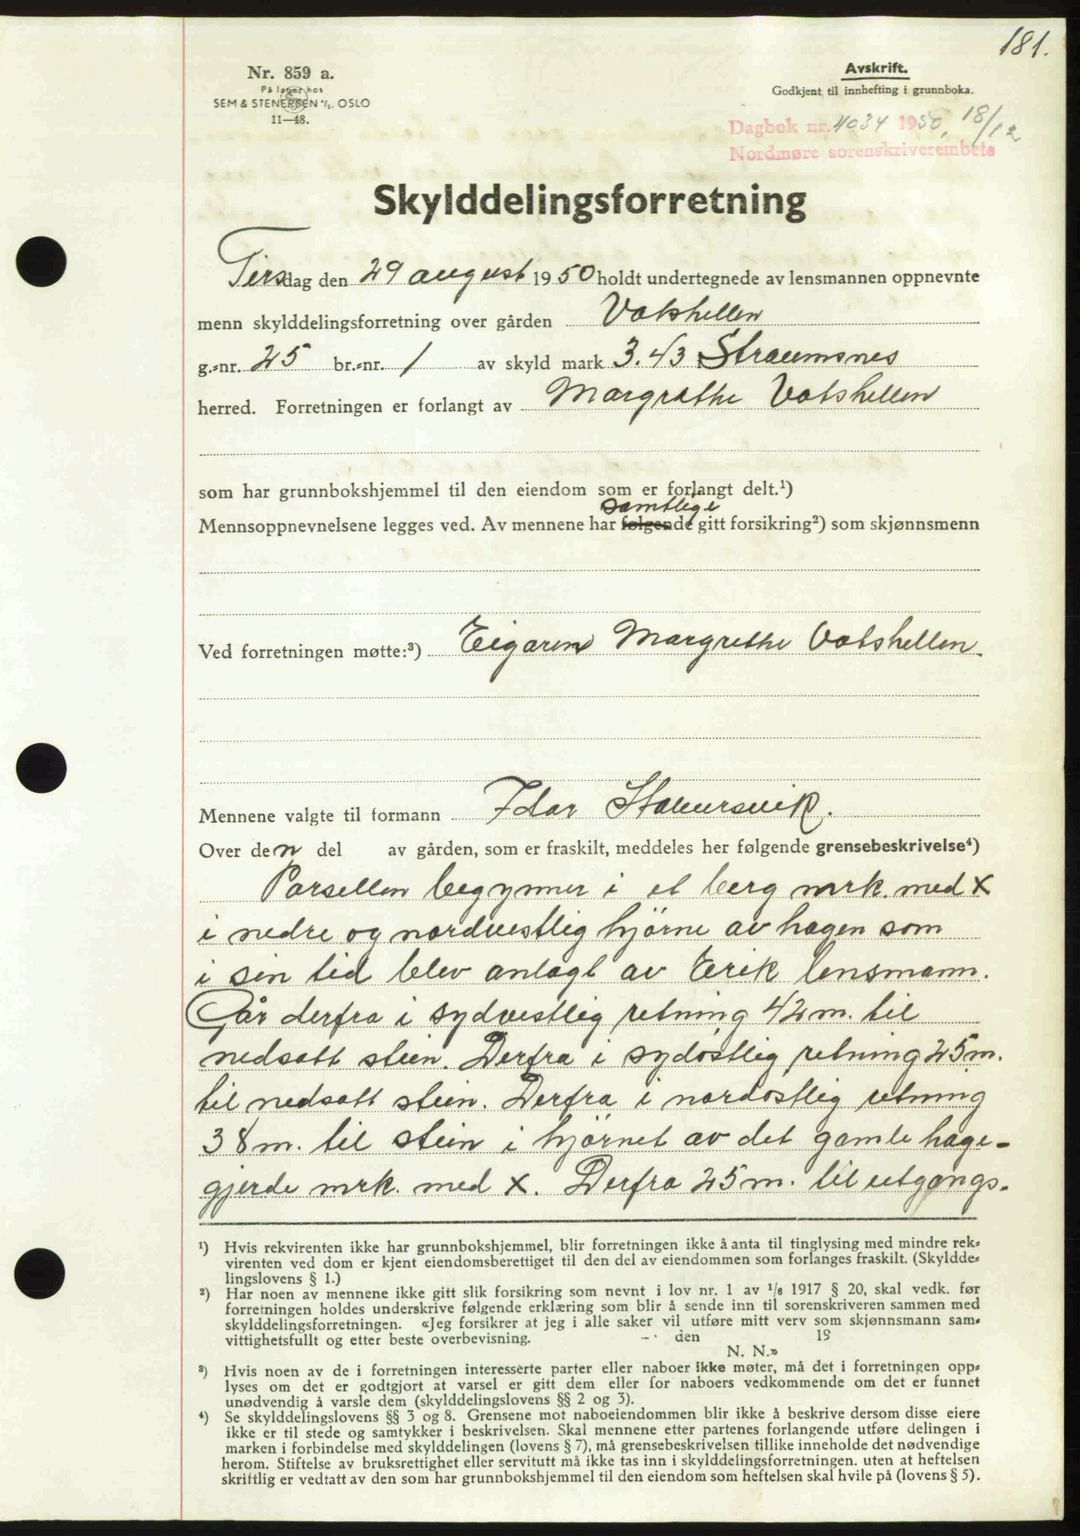 181.
Nr. 859 a.
På lager hos
SEM & STENERSEN A/S, OSLO
11—48.
Avskrift.
Godkjent til innhefting i grunnboka.
Dagbok nr. 4034 1950, 18/12
Nordmøre sorenskriverembete
Skylddelingsforretning
Tirsdag den 29 august 1950 holdt undertegnede av lensmannen oppnevnte
menn skylddelingsforretning over gården Vatshellen
g.-nr. 25 br.-nr. 1 av skyld mark 3.43 Straumsnes
herred. Forretningen er forlangt av Margrethe Vatshellen
som har grunnbokshjemmel til den eiendom som er forlangt delt.¹)
samtlige
Mennsoppnevnelsene legges ved. Av mennene har følgende gitt forsikring²) som skjønnsmenn
Ved forretningen møtte:³) Eigaren Margrethe Vatshellen.
Mennene valgte til formann Idar Stavursvik.
Over den del av gården, som er fraskilt, meddeles her følgende grensebeskrivelse⁴)
Parsellen begynner i et berg mrk. med X
i nedre og nordvestlig hjörne av hagen som
i sin tid blev anlagt av Erik lensmann.
Går derfra i sydvestlig retning 42 m. til
nedsatt stein. Derfra i sydöstlig retning 25 m.
til nedsatt stein. Derfra i nordöstlig retning
38 m. til stein i hjörnet av det gamle hage-
gjerde mrk. med X. Derfra 25 m. til utgangs-
¹) Hvis rekvirenten ikke har grunnbokshjemmel, blir forretningen ikke å anta til tinglysing med mindre rek-
virenten ved dom er kjent eiendomsberettiget til den del av eiendommen som forlanges fraskilt. (Skyldde-
lingslovens § 1.)
²) Har noen av mennene ikke gitt slik forsikring som nevnt i lov nr. 1 av 1/6 1917 § 20, skal vedk. før
forretningen holdes underskrive følgende erklæring som blir å sende inn til sorenskriveren sammen med
skylddelingsforretningen. «Jeg forsikrer at jeg i alle saker vil utføre mitt verv som skjønnsmann sam-
vittighetsfullt og etter beste overbevisning. den 19
N. N.»
³) Hvis noen av de i forretningen interesserte parter eller naboer ikke møter, må det i forretningen opp-
lyses om det er godtgjort at varsel er gitt dem eller for naboers vedkommende om det er funnet
unødvendig å varsle dem (skylddelingslovens §§ 2 og 3).
⁴) Se skylddelingslovens §§ 3 og 8. Grensene mot naboeiendommen blir ikke å beskrive dersom disse eiere
ikke er til stede og samtykker i beskrivelsen. Skal mennene etter partenes forlangende utføre delingen i
marken i forbindelse med skylddelingen (lovens § 7), må grensebeskrivelsen tillike inneholde det nødvendige
herom. Stiftelse av bruksrettighet eller servitutt må ikke tas inn i skylddelingsforretningen. uten at heftelsen
skriftlig er vedtatt av den som har grunnbokshjemmel til den eiendom som heftelsen skal hvile på (lovens § 5).